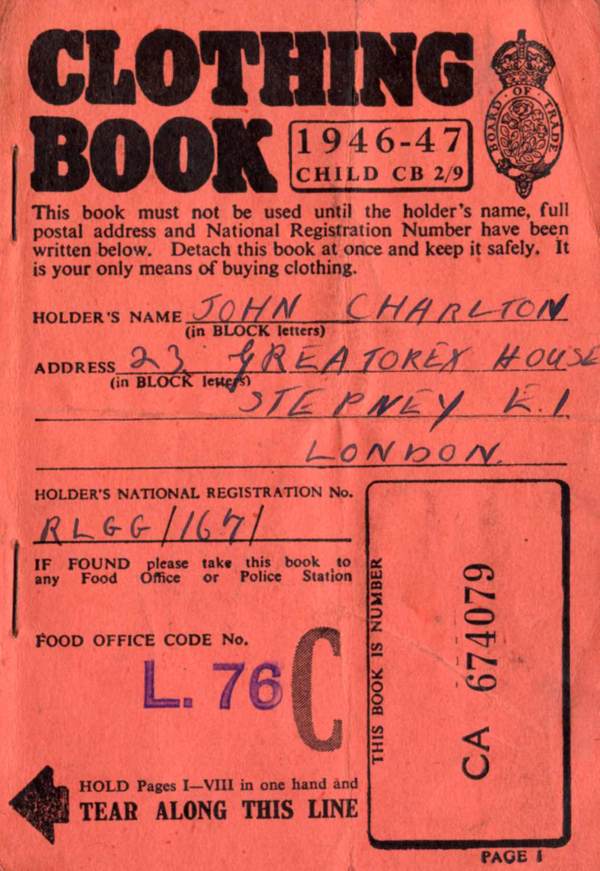 CLOTHING
BOOK
1946-47
CHILD CB 2/9
BOARD · OF · TRADE
This book must not be used until the holder's name, full
postal address and National Registration Number have been
written below. Detach this book at once and keep it safely. It
is your only means of buying clothing.
HOLDER'S NAME JOHN CHARLTON
(in BLOCK letters)
ADDRESS 23 GREATOREX HOUSE
(in BLOCK letters)
STEPNEY E.1
LONDON.
HOLDER'S NATIONAL REGISTRATION No.
RLGG/167/
IF FOUND please take this book to
any Food Office or Police Station
FOOD OFFICE CODE No.
L. 76
C
THIS BOOK IS NUMBER
CA 674079
HOLD Pages I—VIII in one hand and
TEAR ALONG THIS LINE
PAGE I